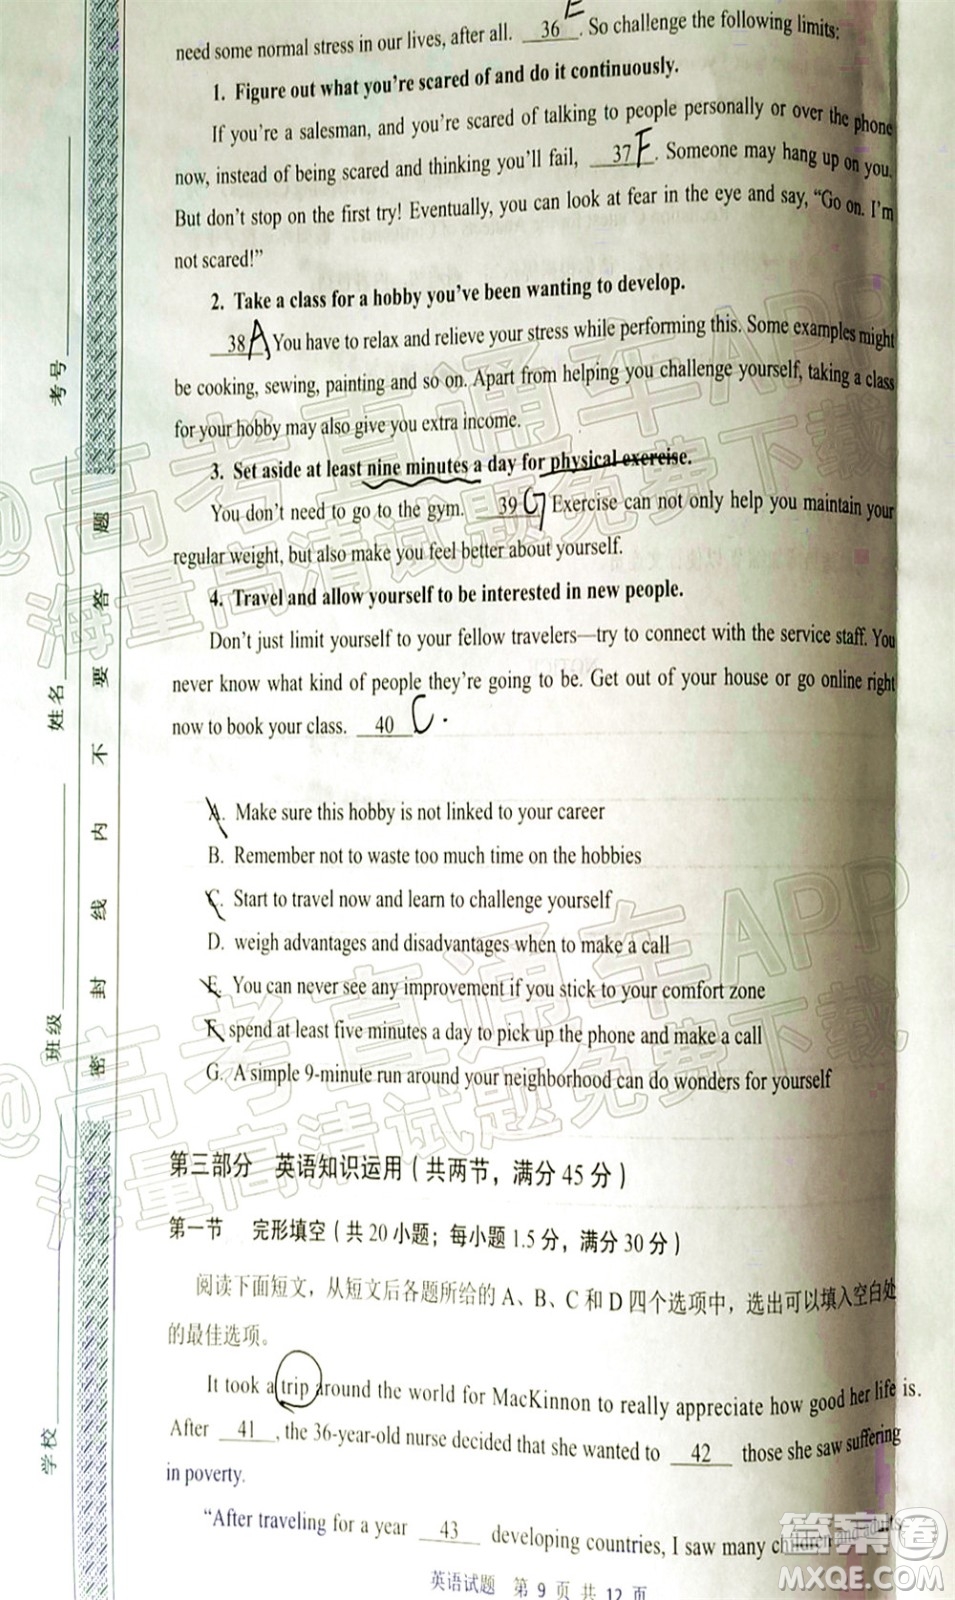 need some normal stress in our lives, after all. 36 E. So challenge the following limits:
1. Figure out what you're scared of and do it continuously.
If you're a salesman, and you're scared of talking to people personally or over the phone
now, instead of being scared and thinking you'll fail, 37 F. Someone may hang up on you.
But don't stop on the first try! Eventually, you can look at fear in the eye and say, “Go on. I'm
not scared!”
2. Take a class for a hobby you've been wanting to develop.
38 A You have to relax and relieve your stress while performing this. Some examples might
be cooking, sewing, painting and so on. Apart from helping you challenge yourself, taking a class
for your hobby may also give you extra income.
3. Set aside at least nine minutes a day for physical exercise.
You don't need to go to the gym. 39 G Exercise can not only help you maintain your
regular weight, but also make you feel better about yourself.
4. Travel and allow yourself to be interested in new people.
Don't just limit yourself to your fellow travelers—try to connect with the service staff. You
never know what kind of people they're going to be. Get out of your house or go online right
now to book your class. 40 C.
A. Make sure this hobby is not linked to your career
B. Remember not to waste too much time on the hobbies
C. Start to travel now and learn to challenge yourself
D. weigh advantages and disadvantages when to make a call
E. You can never see any improvement if you stick to your comfort zone
F. spend at least five minutes a day to pick up the phone and make a call
G. A simple 9-minute run around your neighborhood can do wonders for yourself
第三部分 英语知识运用(共两节,满分45分)
第一节 完形填空(共20小题;每小题1.5分,满分30分)
阅读下面短文,从短文后各题所给的A、B、C和D四个选项中,选出可以填入空白处
的最佳选项。
It took a trip around the world for MacKinnon to really appreciate how good her life is.
After 41, the 36-year-old nurse decided that she wanted to 42 those she saw suffering
in poverty.
“After traveling for a year 43 developing countries, I saw many children and adults
英语试题 第9页 共12页
学校
班级
姓名
考号
密封线内不要答题
@高考直通车APP
海量高清试题免费下载
@高考直通车APP
海量高清试题免费下载
答案圈
MXQE.COM